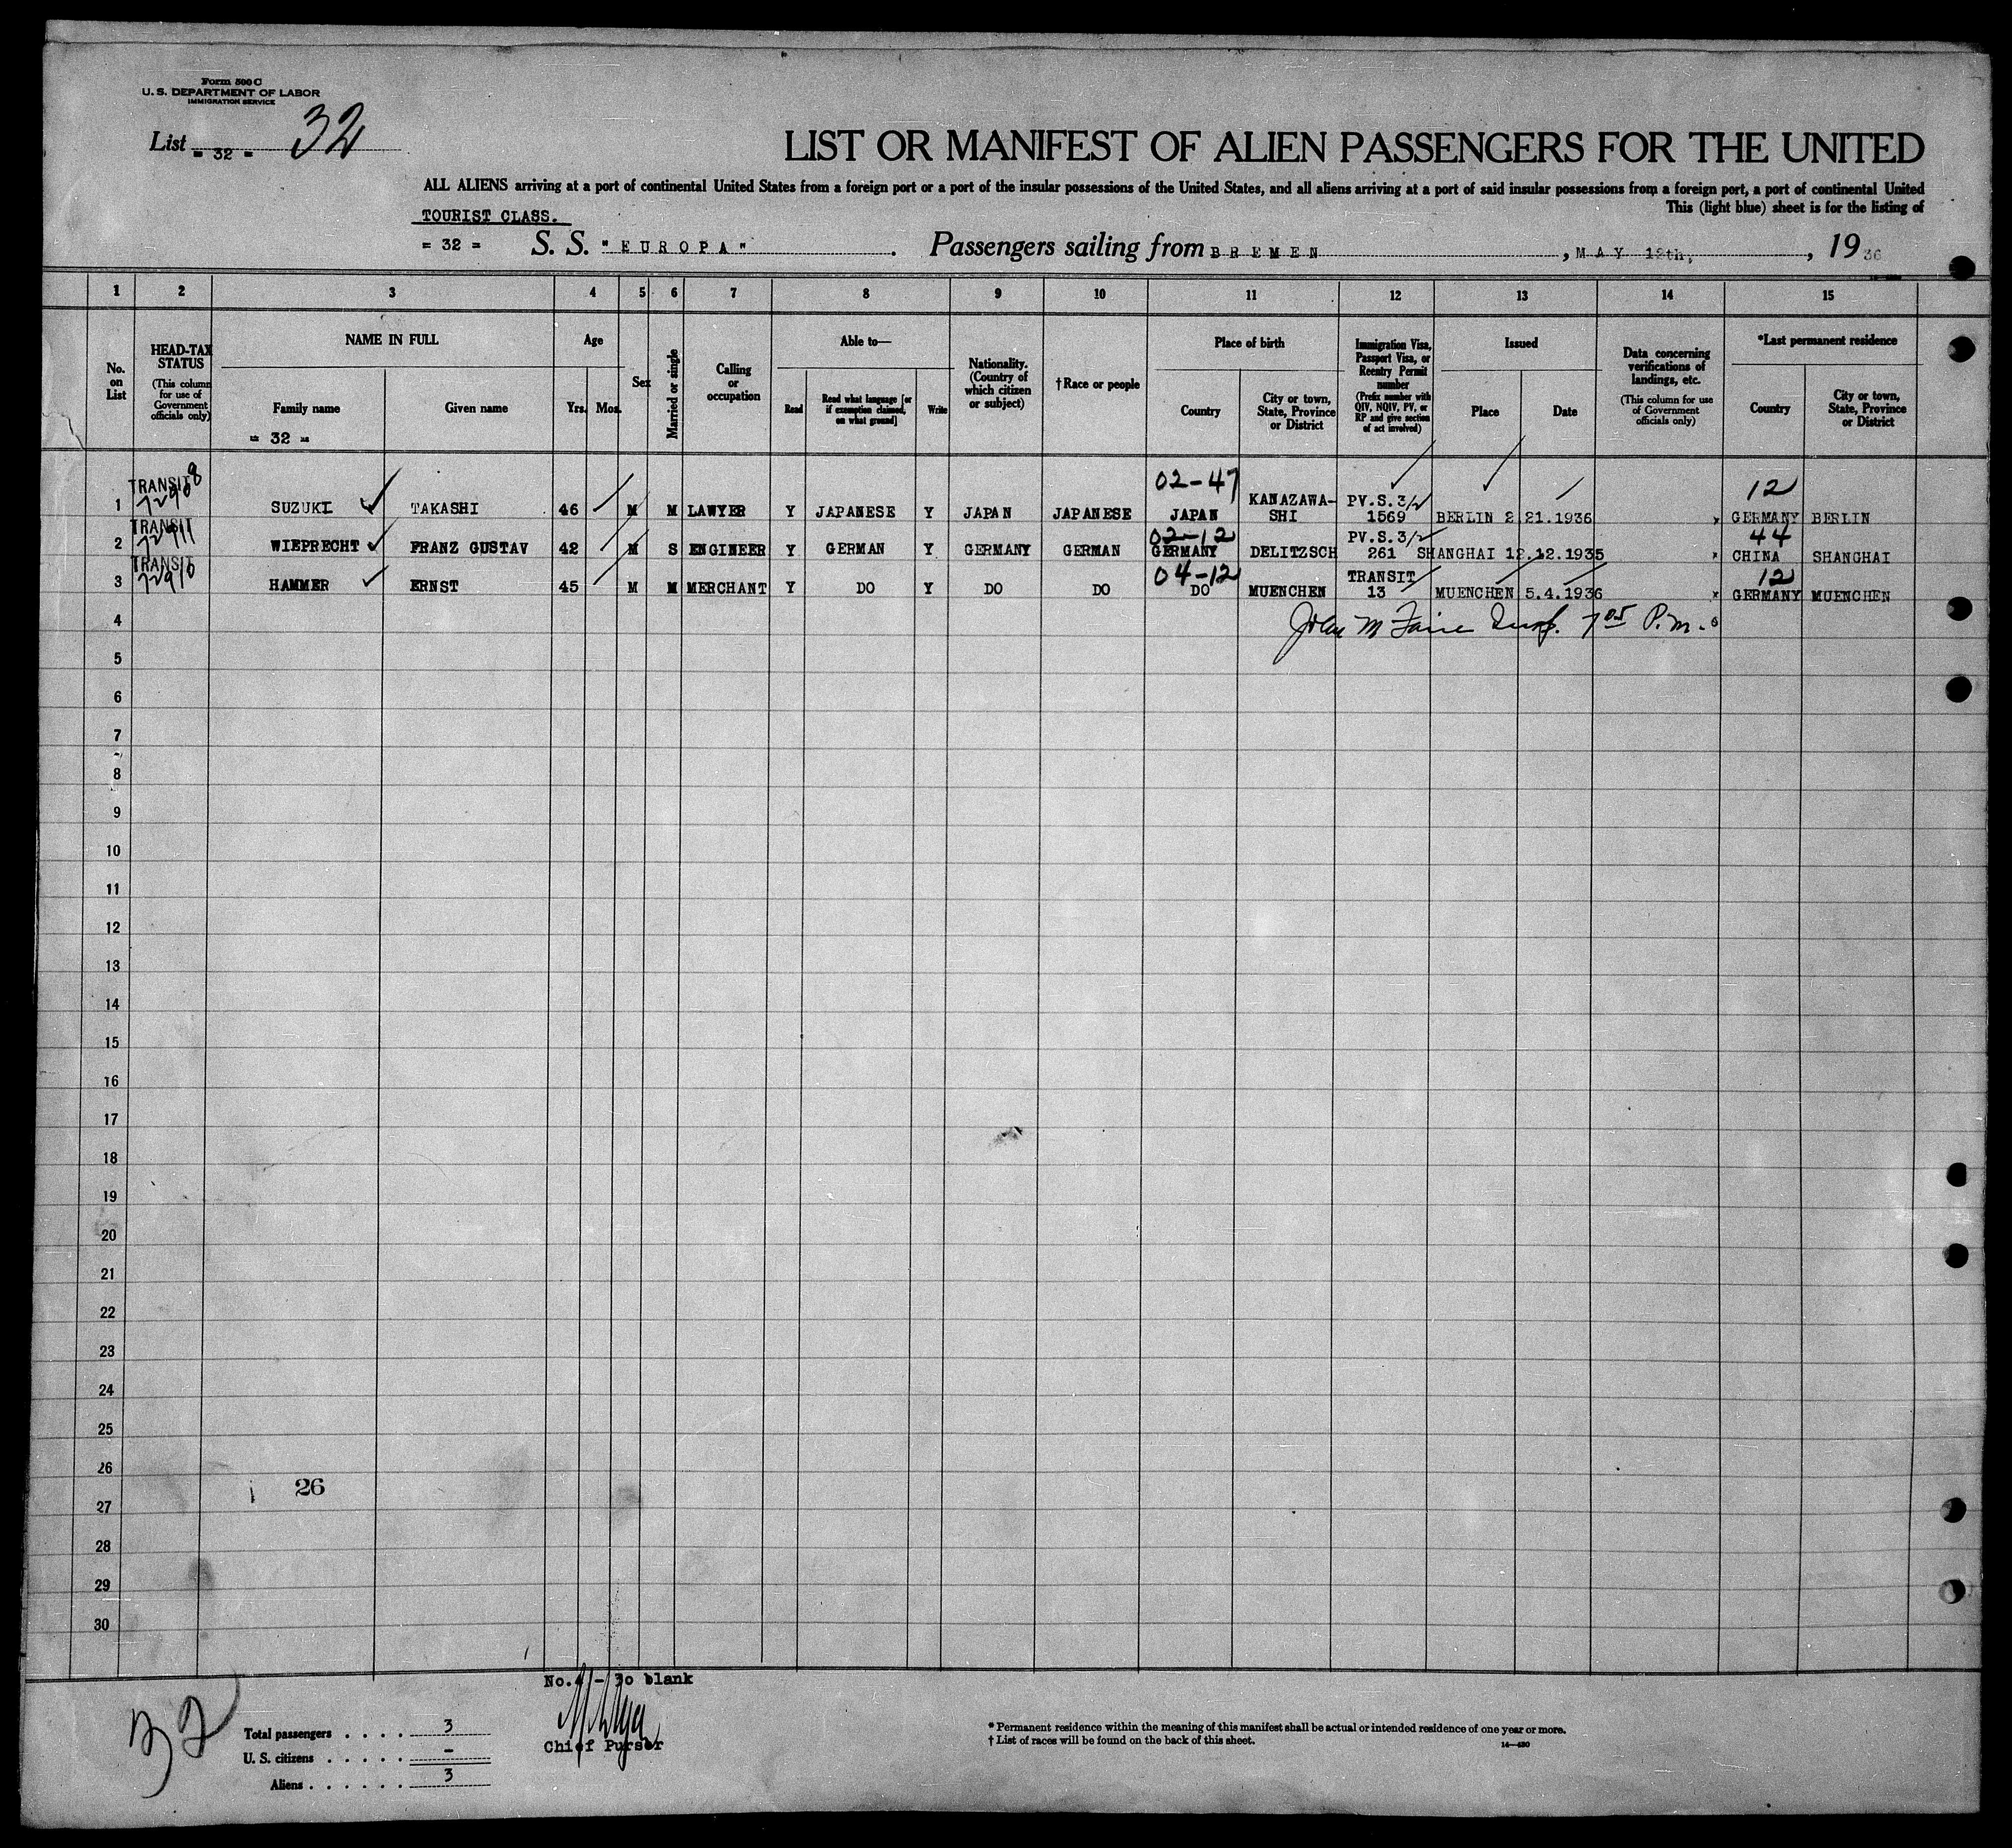 Form 500 C
U. S. DEPARTMENT OF LABOR
IMMIGRATION SERVICE
List = 32 = 32
LIST OR MANIFEST OF ALIEN PASSENGERS FOR THE UNITED
ALL ALIENS arriving at a port of continental United States from a foreign port or a port of the insular possessions of the United States, and all aliens arriving at a port of said insular possessions from a foreign port, a port of continental United
This (light blue) sheet is for the listing of
TOURIST CLASS.
= 32 = S. S. "EUROPA". Passengers sailing from BREMEN, MAY 12th, 1936
1 2 3 4 5 6 7 8 9 10 11 12 13 14 15
No. on List
HEAD-TAX STATUS
(This column for use of Government officials only)
NAME IN FULL
Family name
Given name
= 32 =
Age
Yrs. Mos.
Sex
Married or single
Calling or occupation
Able to—
Read
Read what language [or if exemption claimed, on what ground]
Write
Nationality. (Country of which citizen or subject)
†Race or people
Place of birth
Country
City or town, State, Province or District
Immigration Visa, Passport Visa, or Reentry Permit number
(Prefix number with QIV, NQIV, PV, or RP and give section of act involved)
Issued
Place
Date
Data concerning verifications of landings, etc.
(This column for use of Government officials only)
*Last permanent residence
Country
City or town, State, Province or District
1 TRANSIT SUZUKI TAKASHI 46 M M LAWYER Y JAPANESE Y JAPAN JAPANESE 02-47 JAPAN KANAZAWA-SHI PV.S.3/2 1569 BERLIN 2 21.1936 x 12 GERMANY BERLIN
2 TRANSIT WIEPRECHT FRANZ GUSTAV 42 M S ENGINEER Y GERMAN Y GERMANY GERMAN 02-12 GERMANY DELITZSCH PV.S.3/2 261 SHANGHAI 12.12.1935 x 44 CHINA SHANGHAI
3 TRANSIT HAMMER ERNST 45 M M MERCHANT Y DO Y DO DO 04-12 DO MUENCHEN TRANSIT 13 MUENCHEN 5.4.1936 x 12 GERMANY MUENCHEN
4 Insp. 7 05 P.M.
5
6
7
8
9
10
11
12
13
14
15
16
17
18
19
20
21
22
23
24
25
26
26
27
28
29
30
No.4 - 30 blank
Chief Purser
32
Total passengers . . . . 3
U. S. citizens . . . . . -
Aliens . . . . . . 3
* Permanent residence within the meaning of this manifest shall be actual or intended residence of one year or more.
† List of races will be found on the back of this sheet.
14—430